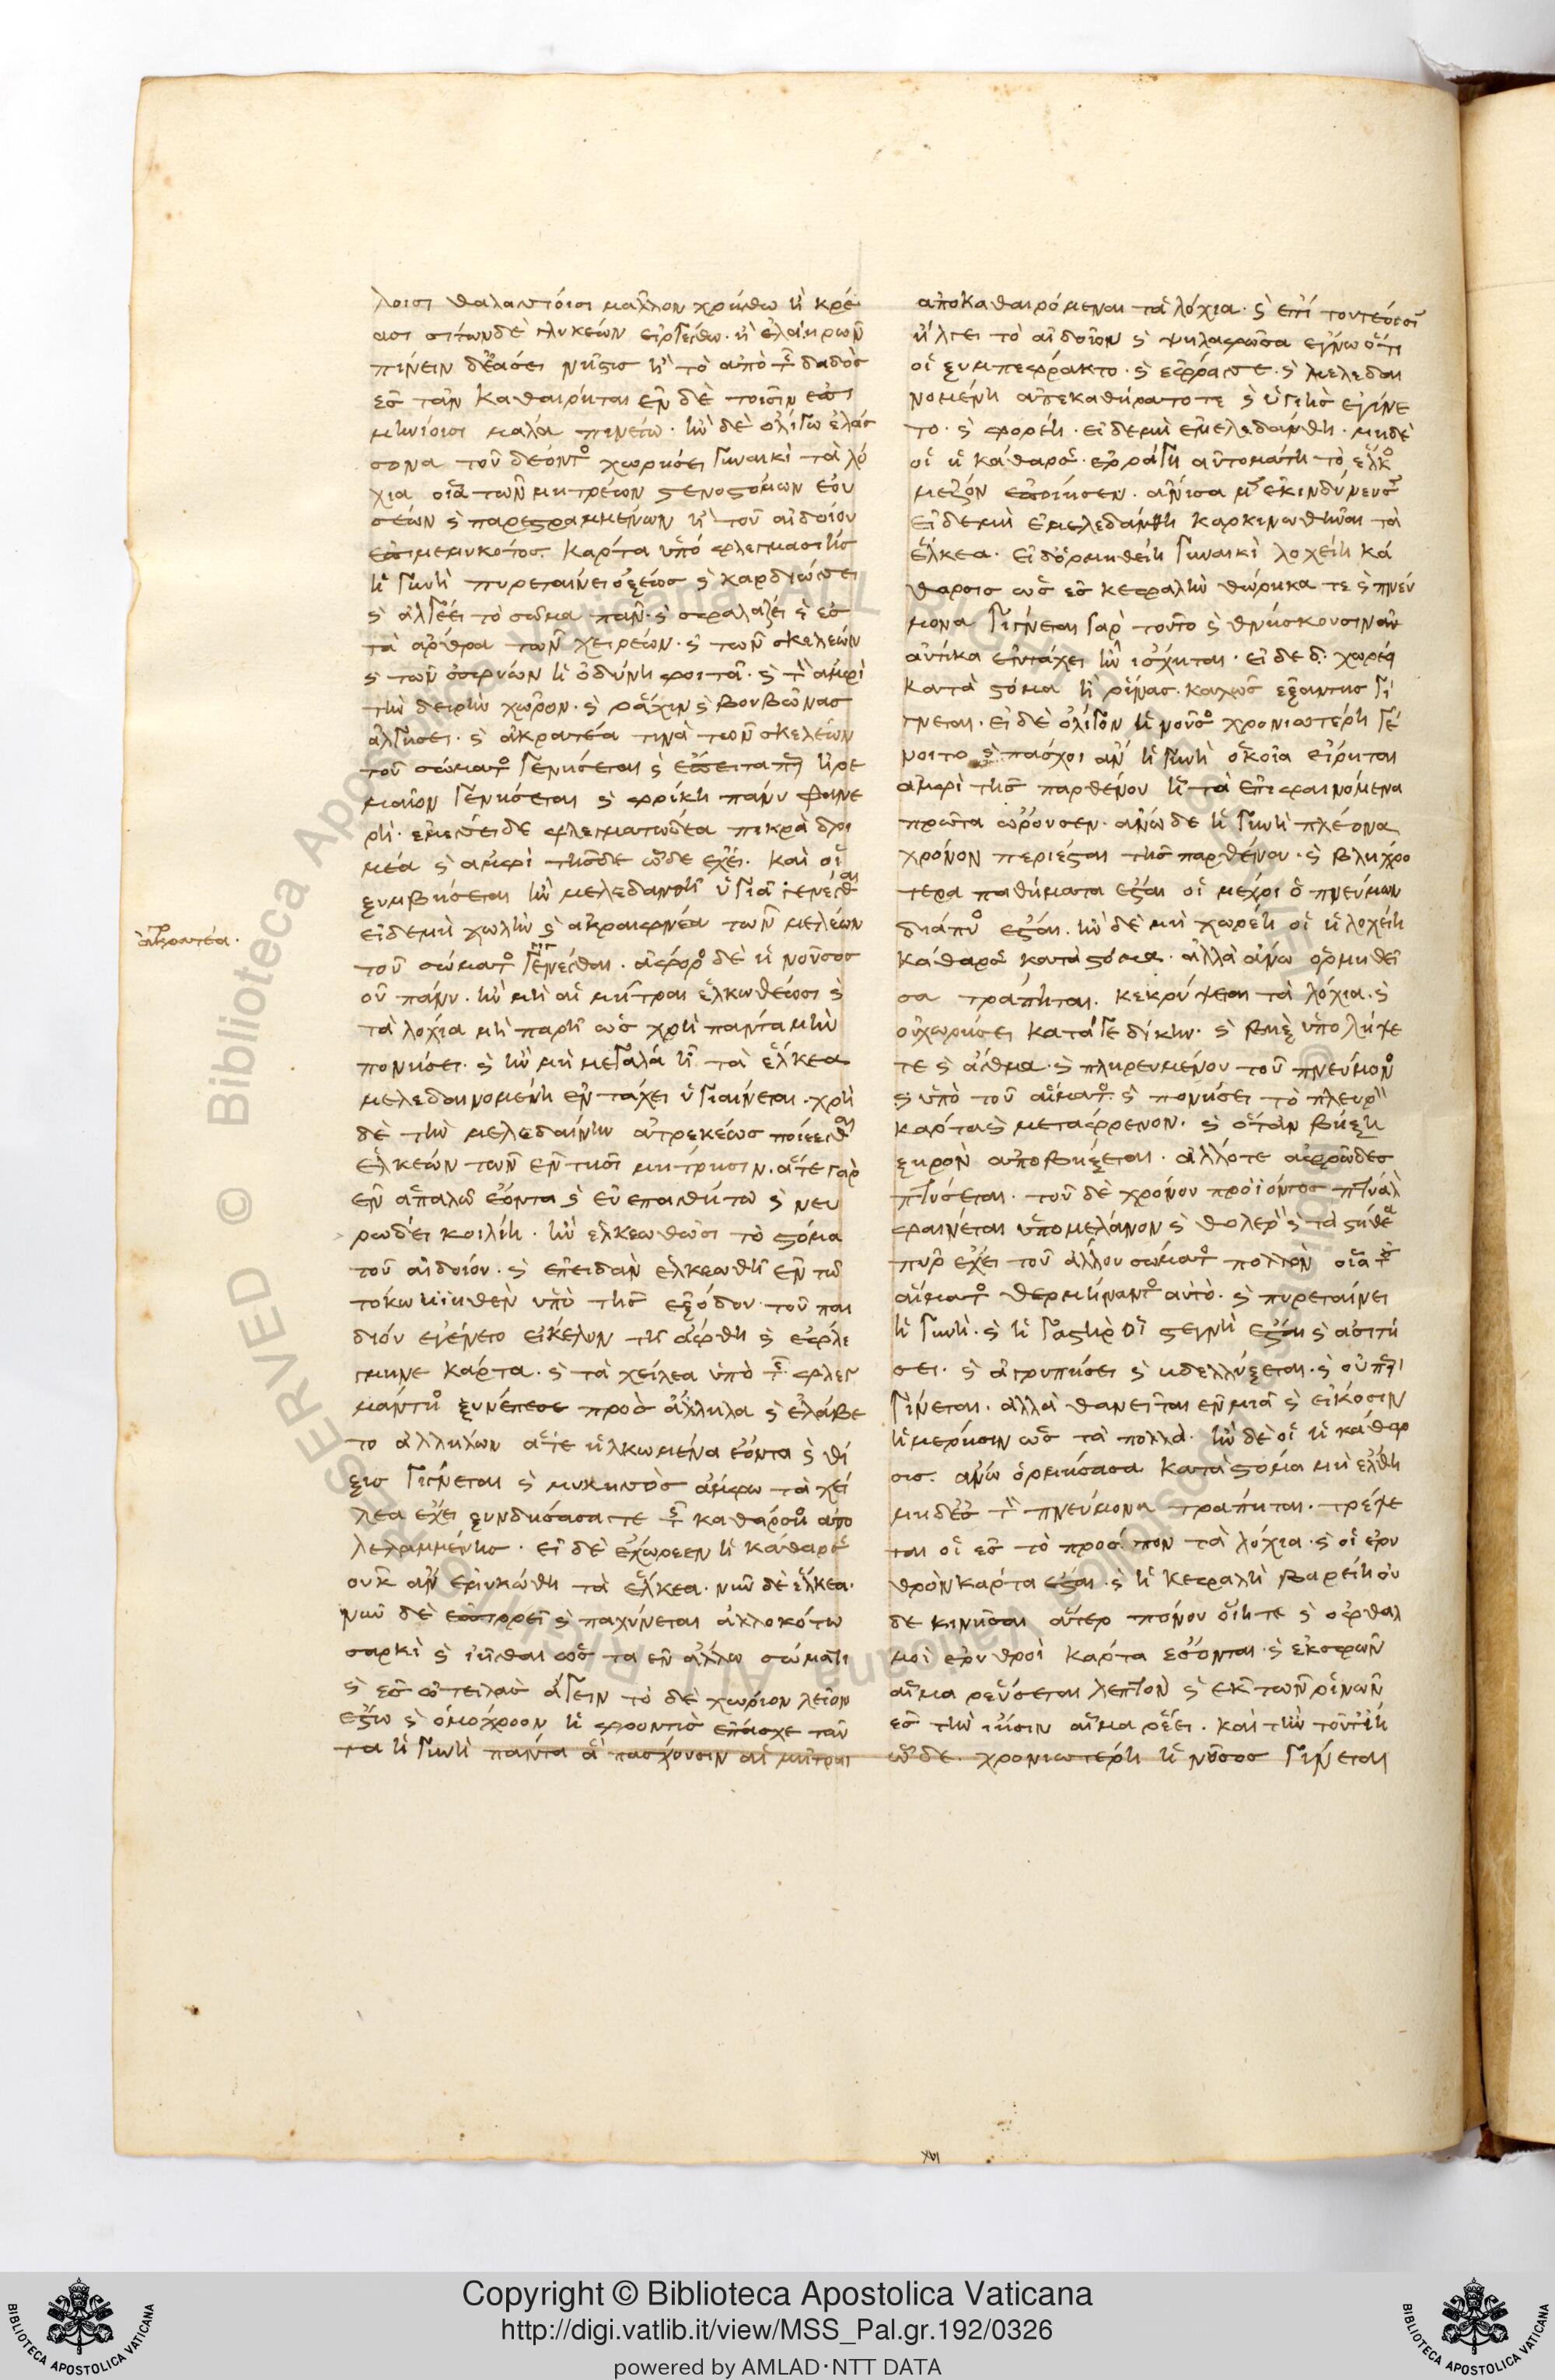 λοισι θαλαττίοισι μᾶλλον χρήσθω ἢ κρέ
ασι σιτίων δὲ γλυκέων εἰργέσθω. ἢ ἐλαιηρῶν
πίνειν δὲ
ἐς τὰν καθαίρηται ἐν δὲ τοῖσιν ἐπι
μηνίοισι μάλα πινέτω. ἢν δὲ ὀλίγω ἐλάσ
σονα τοῦ δέοντος χωρήσει γυναικὶ τὰ λό
χια οἷα τῶν μητρέων στενοστόμων ἐου
σέων καὶ παρεστραμμένων ἢ τοῦ αἰδοίου
ἐπιμεμυκότος. κάρτα ὑπὸ φλεγμασίης
ἡ γυνὴ πυρεταίνει ὀξέως καὶ καρδιώσσει
καὶ ἀλγέει τὸ σῶμα πᾶν. καὶ
τὰ ἄρθρα τῶν χειρέων. καὶ τῶν σκελέων
καὶ τῶν ὀσφύων ἡ ὀδύνη φοιτᾶ. καὶ τὸν ἀμφὶ
τὴν δειρὴν χῶρον. καὶ ῥάχιν καὶ βουβῶνας
ἀλγήσει. καὶ ἀκρατέα τινὰ τῶν σκελέων
τοῦ σώματος γενήσεται καὶ
γενήσεται καὶ φρίκη πάνυ
ρή. ἐμέσει δὲ φλεγματώδεα πικρὰ δρι
μέα καὶ ἀμφὶ τῆσδε ὧδε ἔχει. καὶ οἱ
ξυμβήσεται ἢν μελεδανθῆ ὑγιᾶ γενέσθαι
εἰ δὲ μὴ χωλὴν καὶ τῶν μελέων
τοῦ σώματος γενέσθαι. ἄφορος δὲ ἡ νοῦσος
οὐ πάνυ. ἢν μὴ αἱ μῆτραι ἑλκωθέωσι καὶ
τὰ λοχία μὴ παρῆ ὡς χρὴ πάντα μὴν
πονήσει. καὶ ἢν μὴ μεγάλα ἦ τὰ ἕλκεα
μελεδαινομένη ἐν τάχει ὑγιαίνεται. χρὴ
δὲ τὴν μελεδαίνην ἀτρεκέως ποιέεσθαι
ἑλκέων τῶν ἐν τῆσι μήτρησιν. ἅτε γὰρ
ἐν ἁπαλῶ ἐόντα καὶ εὐεπαισθήτω καὶ νευ
ρώδει κοιλίη. ἢν ἑλκεωθῶσι τὸ στόμα
τοῦ αἰδοίου. καὶ ἐπειδὰν ἑλκεωθῆ ἐν τῶ
τόκω ὑπὸ τῆς ἐξόδου τοῦ παι
δίου ἐγένετο εἴκελον τῆ ἄφθη καὶ ἐφλε
γμηνε κάρτα. καὶ τὰ χείλεα ὑπὸ τῆς φλεγ
ξυνέπεσε πρὸς ἄλληλα καὶ ἐλάβε
το ἀλλήλων ἅτε ἡλκωμένα ἐόντα καὶ θί
ξις γίγνεται καὶ ἄμφω τὰ χεί
λεα ἔχει ξυνδήσασά τε τῆς καθάρσιος ἀπο
λελαμμένης. εἰ δὲ ἐχώρεεν ἡ κάθαρσις
οὐκ ἂν τὰ ἕλκεα. νῦν δὲ ἕλκεα.
νῦν δὲ ἐπιρρεῖ καὶ παχύνεται ἀλλοκότω
σαρκὶ καὶ ἰῆσθαι ὡς τὰ ἐν ἄλλω σώματι
καὶ ἐς ὠτειλὰς ἄγειν τὸ δὲ χωρίον λεῖον
ἔξω καὶ ὁμόχροον ἡ φροντὶς ἐπάσχε ταῦ
τα ἡ γυνὴ πάντα ἃ πάσχουσιν αἱ μῆτραι
ἀκρατέα.
ἀποκαθαιρόμεναι τὰ λόχια. καὶ ἐπὶ τουτέοισι
ἤλγει τὸ αἰδοῖον καὶ ψηλαφῶσα ἔγνω ὅτι
οἱ ξυμπέφρακτο. καὶ ἔφρασε. καὶ μελεδαι
νομένη ἀπεκαθήρατό τε καὶ ὑγιὴς ἐγίνε
το. καὶ φορέη. εἰ δὲ μὴ ἐμελεδάνθη. μηδὲ
οἱ ἡ κάθαρσις ἐρράγη αὐτομάτη τὸ ἕλκος
μεῖζον ἐποίησεν. ἂν ἴσα
εἰ δὲ μὴ ἐμελεδάνθη καρκινωθῆναι τὰ
ἕλκεα. εἰ δ' ὁρμηθείη γυναικὶ λοχείη κά
θαρσις ὡς ἐς κεφαλὴν θώρηκά τε καὶ πνεύ
μονα γίγνεται γὰρ τοῦτο καὶ θνήσκουσιν ἂν
αὐτίκα ἐν τάχει ἢν ἴσχηται. εἰ δὲ δι.. χωρέη
κατὰ στόμα ἢ ῥῖνας. καλῶς ἐξάντης γί
γνεται. εἰ δὲ ὀλίγον ἡ νοῦσος χρονιωτέρη γέ
νοιτο καὶ πάσχοι ἂν ἡ γυνὴ ὁκοῖα εἴρηται
ἀμφὶ τῆς παρθένου ἢ τὰ ἐπιφαινόμενα
πρῶτα ὤρουσεν. ἄνω δὲ ἡ γυνὴ πλέονα
χρόνον περιέσται τῆς παρθένου. καὶ βληχρό
τερα παθήματα ἔσται οἱ μέχρι ὁ πνεύμων
διάπυος ἔσται. ἢν δὲ μὴ χωρέη οἱ ἡ λοχείη
κάθαρσις κατὰ στόμα. ἀλλὰ ἄνω ὁρμηθεῖ
σα τράπηται. κεκρύψεται τὰ λόχια. καὶ
οὐ χωρήσει κατά γε δίκην. καὶ βὴξ ὑπολήψε
τε καὶ ἆσθμα. καὶ πληρευμένου τοῦ πνεύμονος
καὶ ὑπὸ τοῦ αἵματος. καὶ πονήσει τὸ πλευρὸν
κάρτα καὶ μετάφρενον. καὶ ὅταν βήξη
ξηρὸν ἀποβήξεται. ἄλλοτε ἀφρῶδες
πτύσεται. τοῦ δὲ χρόνου προϊόντος πτύαλον
φαίνεται ὑπομέλανον καὶ θολερὸν καὶ τὰ στήθεα
πῦρ ἔχει τοῦ ἄλλου σώματος πολλὸν οἷα τοῦ
αἵματος θερμήναντος αὐτό. καὶ πυρεταίνει
ἡ γυνή. καὶ ἡ γαστήρ οἱ στεγνὴ ἔσται καὶ ἀσιτή
σει. καὶ ἀγρυπνήσει καὶ βδελλύξεται. καὶ οὐ
γίνεται. ἀλλὰ θανεῖται ἐν μιᾶ καὶ εἴκοσιν
ἡμέρησιν ὡς τὰ πολλά. ἢν δὲ οἱ ἡ κάθαρ
σις. ἄνω ὁρμήσασα κατὰ στόμα μὴ ἔλθη
μηδ' ἐς τὸν πνεύμονα τράπηται. τρέψε
ται οἱ ἐς τὸ πρόσωπον τὰ λόχια. καὶ οἱ ἐρυ
θρὸν κάρτα ἔσται. καὶ ἡ κεφαλὴ βαρείη οὐ
δὲ κινῆσαι ἄτερ πόνου οἵη τε καὶ ὀφθαλ
μοὶ ἐρυθροὶ κάρτα ἔσονται. καὶ ἐκ σφῶν
αἷμα ῥεύσεται λεπτὸν καὶ ἐκ τῶν ῥινῶν
ἐς τὴν αἷμα ῥέει. καὶ τὴν τουτέη
ὧδε. χρονιωτέρη ἡ νοῦσος γίνεται
Copyright © Biblioteca Apostolica Vaticana
http://digi.vatlib.it/view/MSS_Pal.gr.192/0326
powered by AMLAD·NTT DATA